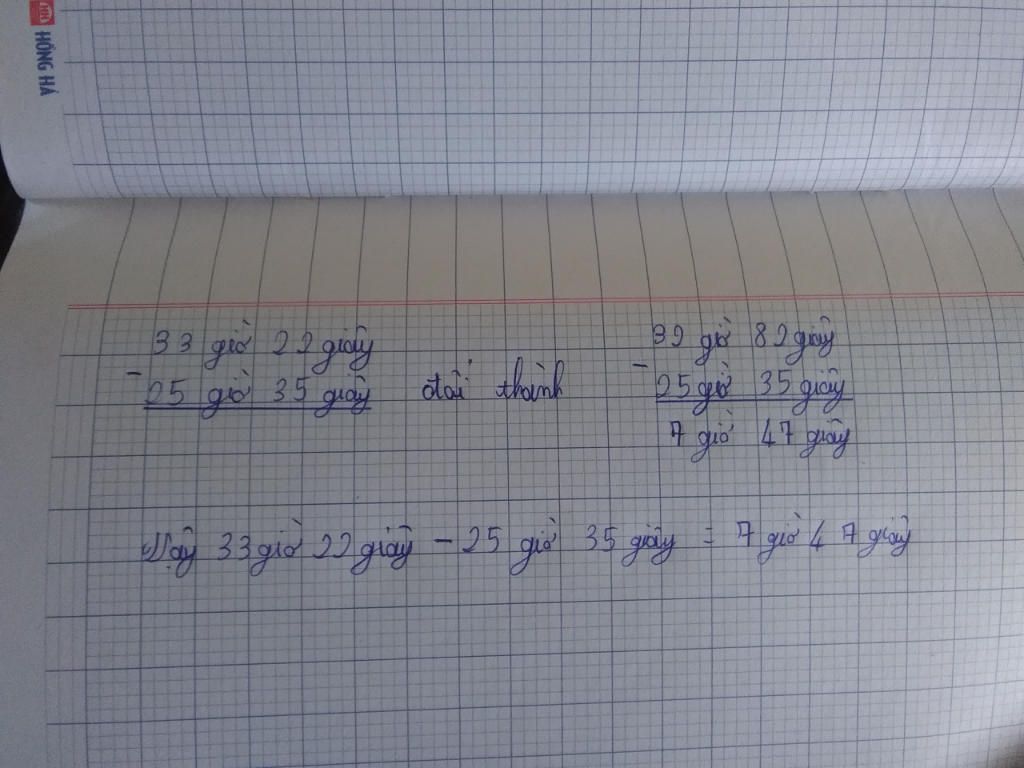 HỒNG HÀ
33 giờ 22 giây
- 25 giờ 35 giây
đổi thành
32 giờ 82 giây
- 25 giờ 35 giây
7 giờ 47 giây
Vậy 33 giờ 22 giây - 25 giờ 35 giây = 7 giờ 47 giây